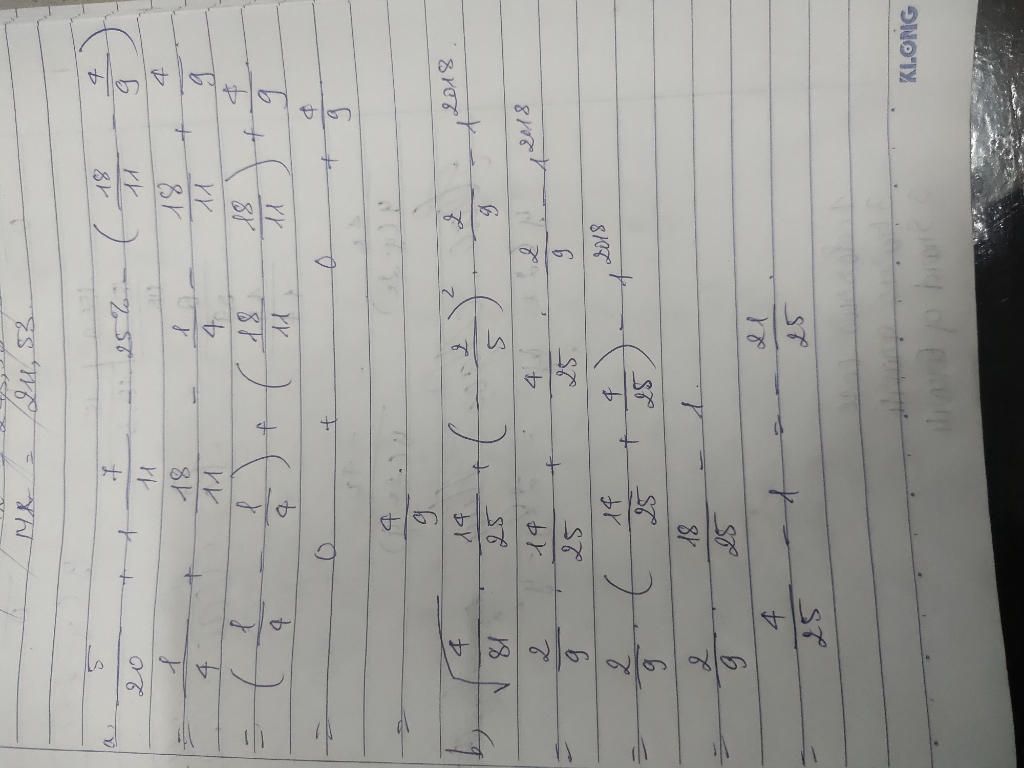 MK = 211,53
a. 5/20 + 1 7/11 - 25% - (18/11 - 4/9)
= 1/4 + 18/11 - 1/4 - 18/11 + 4/9
= (1/4 - 1/4) + (18/11 - 18/11) + 4/9
= 0 + 0 + 4/9
= 4/9
b) √4/81 . 14/25 + (-2/5)² . 2/9 - 1²⁰¹⁸
= 2/9 . 14/25 + 4/25 . 2/9 - 1²⁰¹⁸
= 2/9 . (14/25 + 4/25) - 1²⁰¹⁸
= 2/9 . 18/25 - 1
= 4/25 - 1 = - 21/25
KLONG